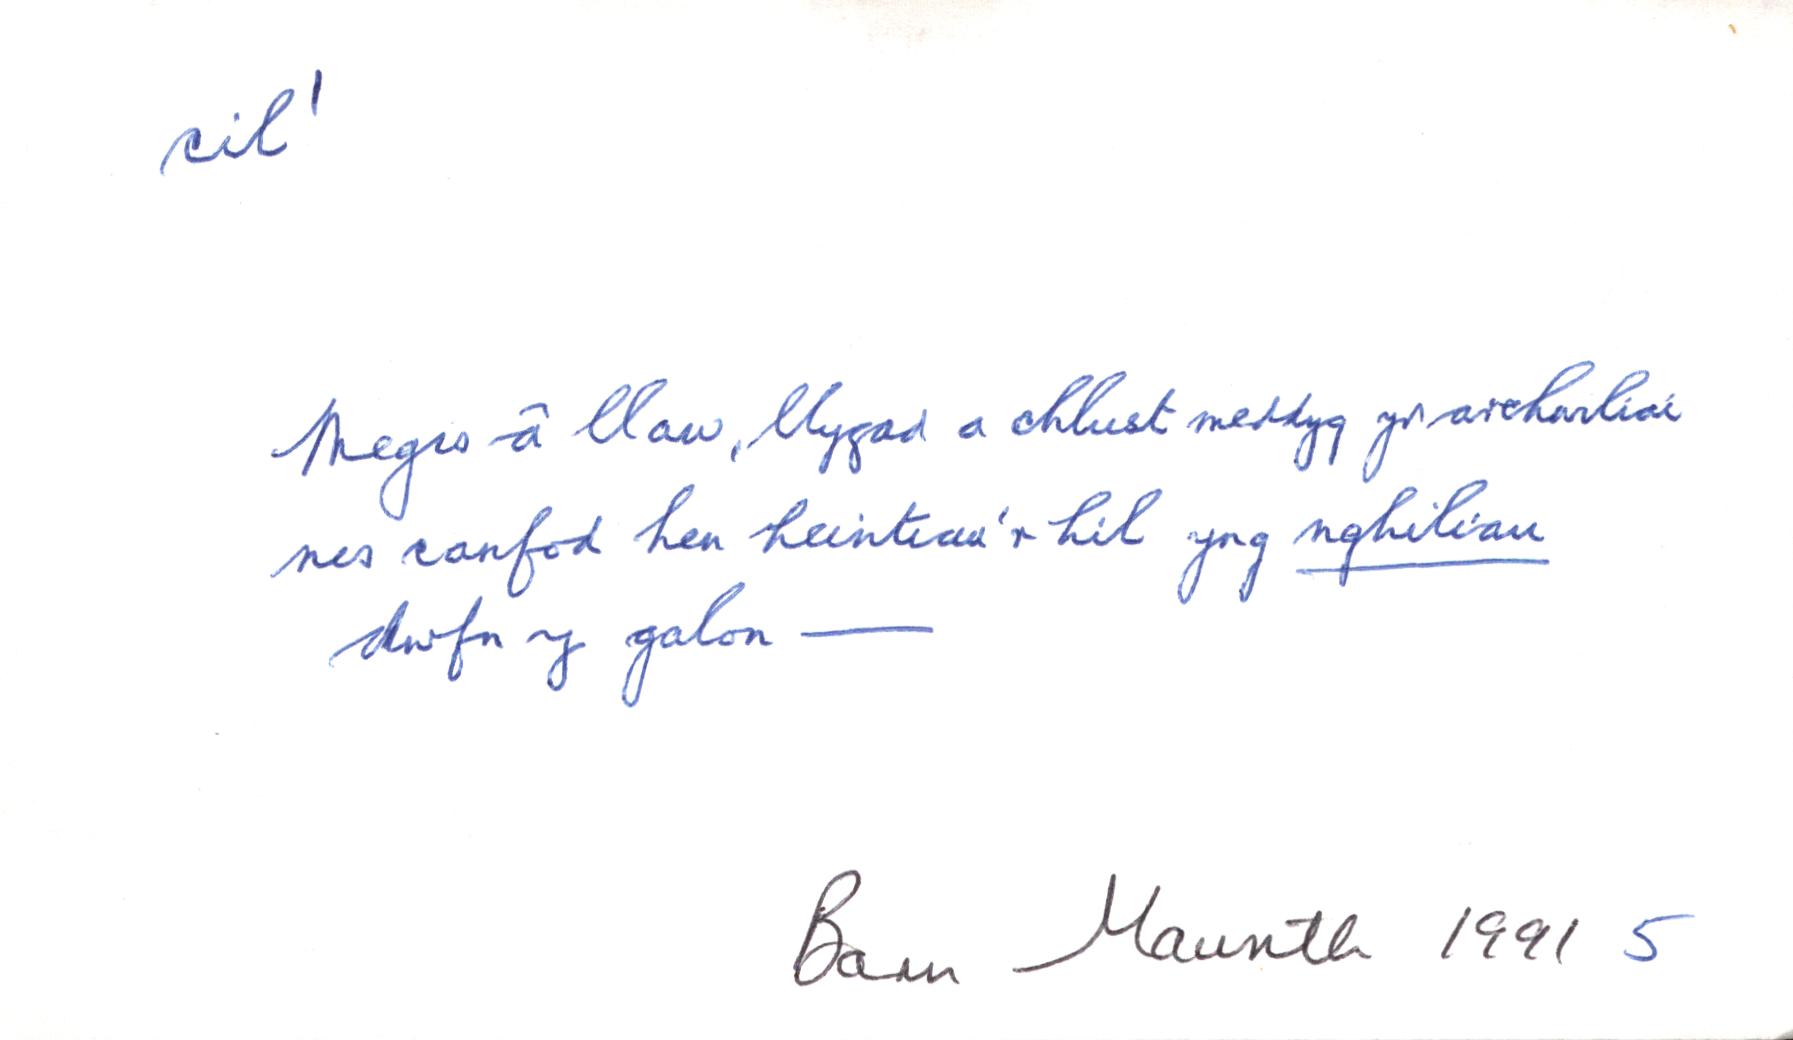 cil¹
Megis â llaw, llygad a chlust meddyg yr archwiliai
nes canfod hen heintiau'r hil yng nghiliau
dwfn y galon —
Barn Mawrth 1991 5